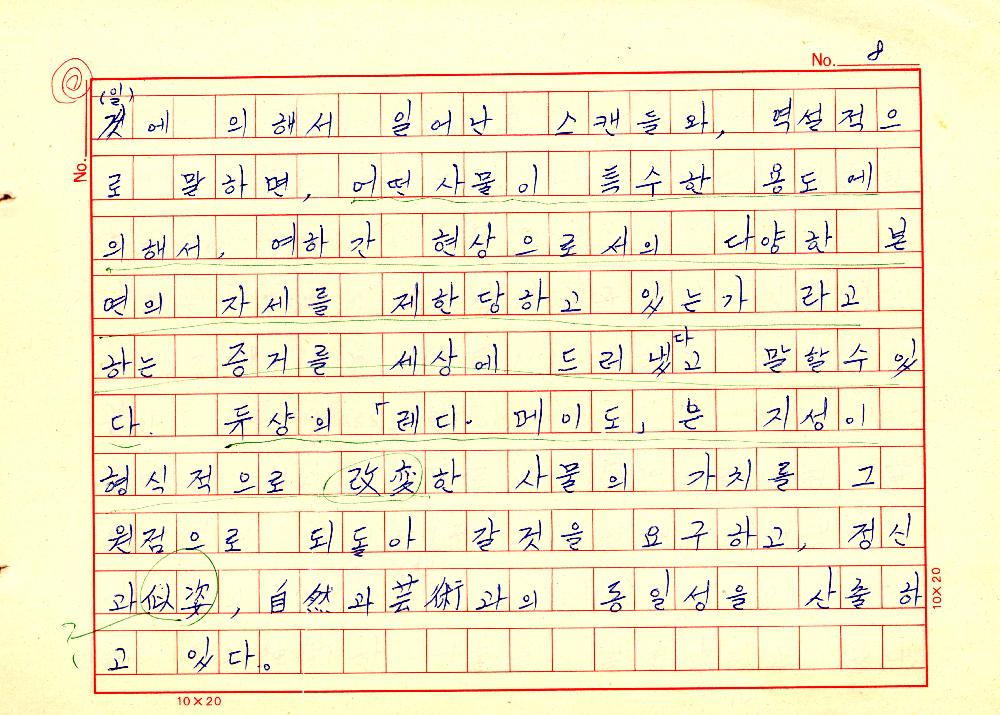 No. 8
No.
(일)
것에 의해서 일어난 스캔들와, 역설적으
로 말하면, 어떤 사물이 특수한 용도에
의해서, 여하간 현상으로서의 다양한 본
연의 자세를 제한당하고 있는가 라고
하는 증거를 세상에 드러냈다고 말할수있
다. 듀샹의 「레디·메이도」는 지성이
형식적으로 改変한 사물의 가치를 그
원점으로 되돌아 갈것을 요구하고, 정신
과似姿, 自然과芸術과의 동일성을 산출하
고 있다。
10×20
10×20